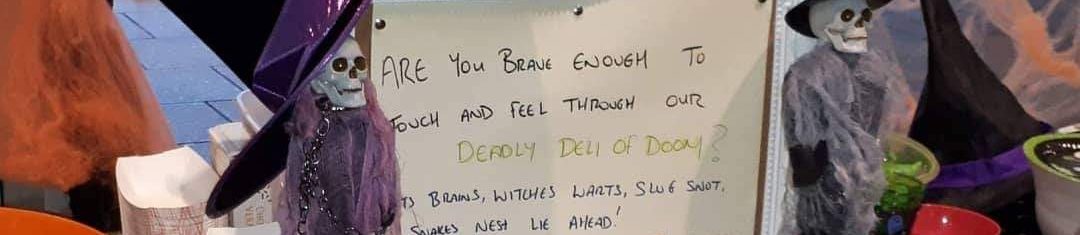 ARE YOU BRAVE ENOUGH TO
TOUCH AND FEEL THROUGH OUR
DEADLY DELI OF DOOM?
BRAINS, WITCHES WARTS, SLUG SNOT,
SNAKES NEST LIE AHEAD!